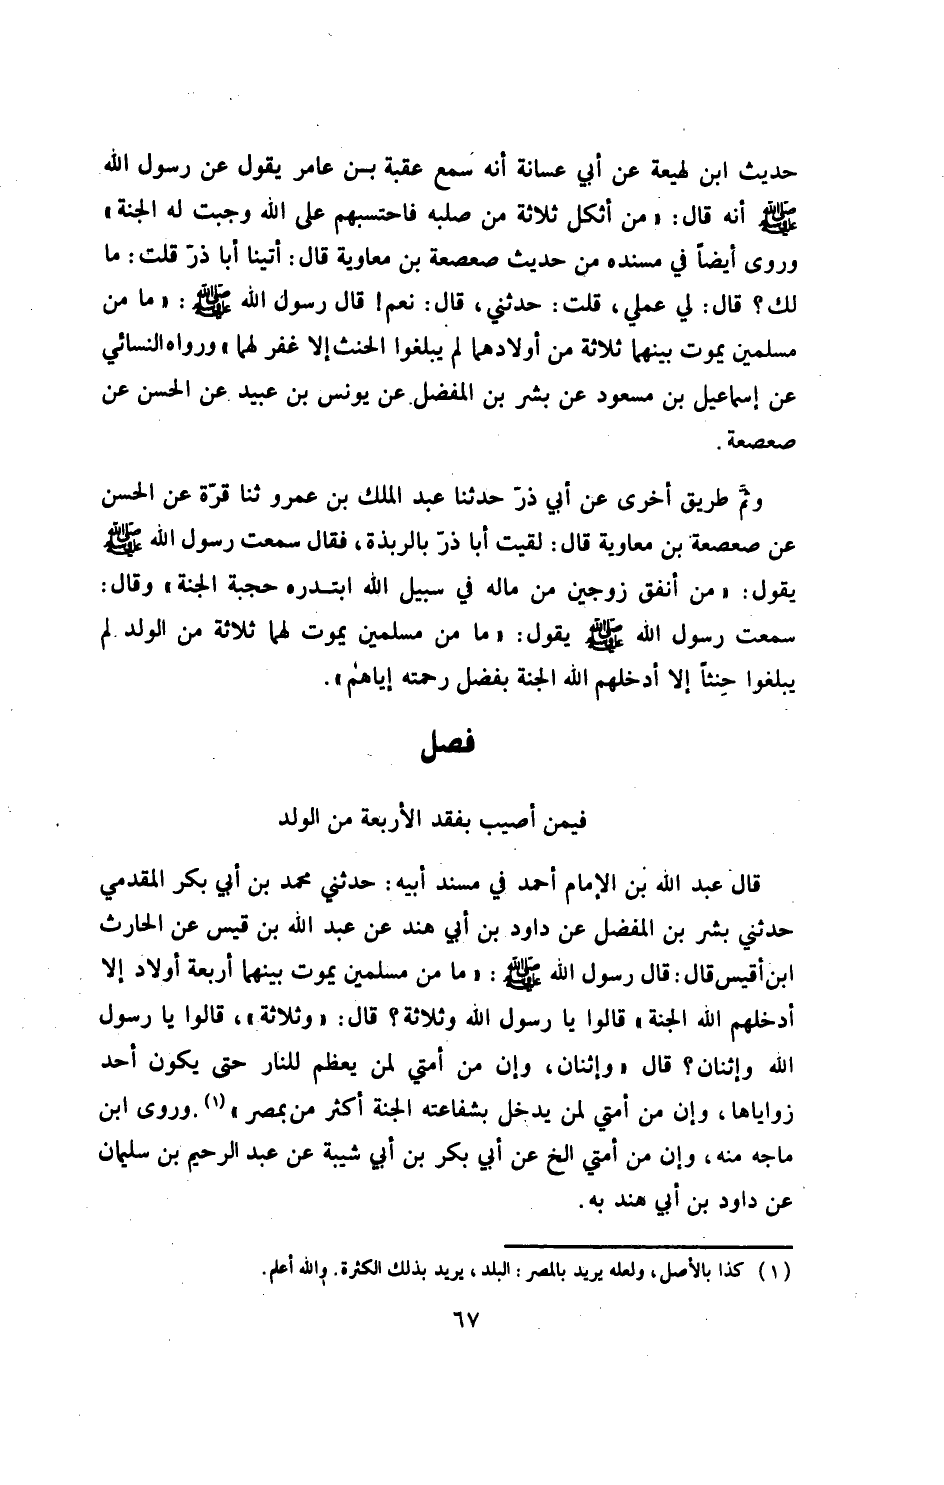 حديث ابن لهيعة عن أبي عسانة أنه سمع عقبة بن عامر يقول عن رسول الله
ﷺ أنه قال: «من أثكل ثلاثة من صلبه فاحتسبهم على الله وجبت له الجنة»
وروى أيضاً في مسنده من حديث صعصعة بن معاوية قال: أتينا أبا ذرّ قلت: ما
لك؟ قال: لي عملي، قلت: حدثني، قال: نعم! قال رسول الله ﷺ: «ما من
مسلمين يموت بينهما ثلاثة من أولادهما لم يبلغوا الحنث إلا غفر لهما» ورواه النسائي
عن إسماعيل بن مسعود عن بشر بن المفضل عن يونس بن عبيد عن الحسن عن
صعصعة.
وثمَّ طريق أخرى عن أبي ذرّ حدثنا عبد الملك بن عمرو ثنا قرّة عن الحسن
عن صعصعة بن معاوية قال: لقيت أبا ذرّ بالربذة، فقال سمعت رسول الله ﷺ
يقول: «من أنفق زوجين من ماله في سبيل الله ابتدره حجبة الجنة» وقال:
سمعت رسول الله ﷺ يقول: «ما من مسلمين يموت لهما ثلاثة من الولد لم
يبلغوا حِنثاً إلا أدخلهم الله الجنة بفضل رحمته إياهم».
فصل
فيمن أصيب بفقد الأربعة من الولد
قال عبد الله بن الإمام أحمد في مسند أبيه: حدثني محمد بن أبي بكر المقدمي
حدثني بشر بن المفضل عن داود بن أبي هند عن عبد الله بن قيس عن الحارث
ابن أقيس قال: قال رسول الله ﷺ: «ما من مسلمين يموت بينهما أربعة أولاد إلا
أدخلهم الله الجنة» قالوا يا رسول الله وثلاثة؟ قال: «وثلاثة»، قالوا يا رسول
الله وإثنان؟ قال «وإثنان، وإن من أمتي لمن يعظم للنار حتى يكون أحد
زواياها، وإن من أمتي لمن يدخل بشفاعته الجنة أكثر من بمصر»(١). وروى ابن
ماجه منه، وإن من أمتي الخ عن أبي بكر بن أبي شيبة عن عبد الرحيم بن سليمان
عن داود بن أبي هند به.
(١) كذا بالأصل، ولعله يريد بالمصر: البلد، يريد بذلك الكثرة. والله أعلم.
٦٧